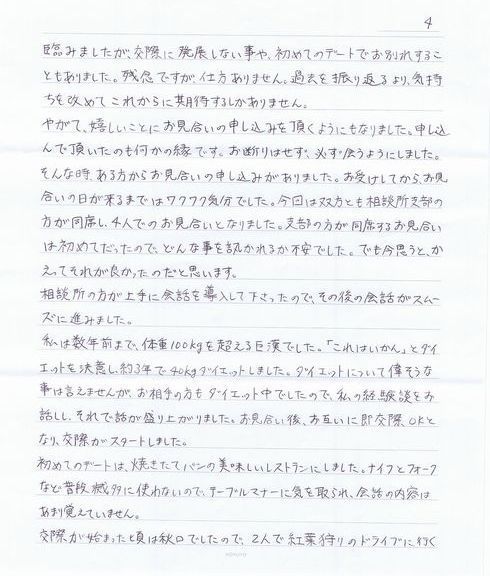 4
臨みましたが、交際に発展しない事や、初めてのデートでお別れするこ
ともありました。残念ですが、仕方ありません。過去を振り返るより、気持
ちを改めてこれからに期待するしかありません。
やがて、嬉しいことにお見合いの申し込みを頂くようにもなりました。申し込
んで頂いたのも何かの縁です。お断りはせず、必ず会うようにしました。
そんな時、ある方からお見合いの申し込みがありました。お受けしてから、お見
合いの日が来るまではワクワク気分でした。今回は双方とも相談所支部の
方が同席し、4人でのお見合いとなりました。支部の方が同席するお見合い
は初めてだったので、どんな事を訊かれるか不安でした。でも今思うと、か
えってそれが良かったのだと思います。
相談所の方が上手に会話を導入して下さったので、その後の会話がスムー
ズに進みました。
私は数年前まで、体重100kgを超える巨漢でした。「これはいかん」とダイ
エットを決意し、約3年で40kgダイエットしました。ダイエットについて偉そうな
事は言えませんが、お相手の方もダイエット中でしたので、私の経験談をお
話しし、それで話が盛り上がりました。お見合い後、お互いに即交際OKと
なり、交際がスタートしました。
初めてのデートは、焼きたてパンの美味しいレストランにしました。ナイフとフォーク
など普段滅多に使わないので、テーブルマナーに気を取られ、会話の内容は
あまり覚えていません。
交際が始まった頃は秋口でしたので、2人で紅葉狩りのドライブに行く
KOKUYO